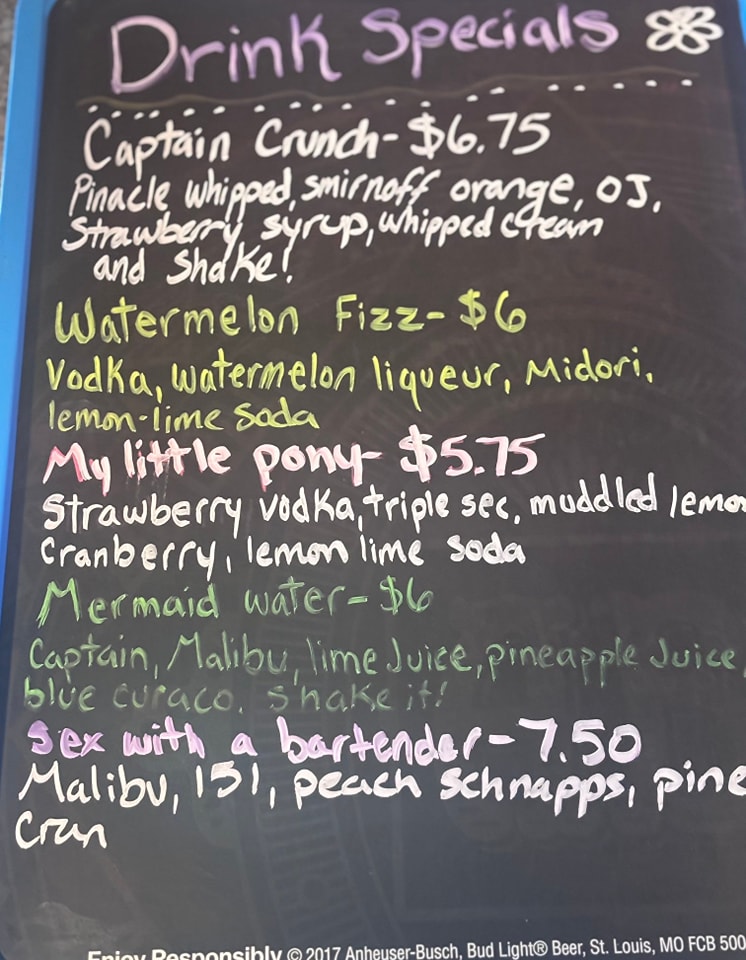 Drink Specials
Captain Crunch- $6.75
Pinacle whipped, smirnoff orange, OJ,
Strawberry syrup, whipped cream
and Shake!
Watermelon Fizz- $6
Vodka, watermelon liqueur, Midori,
lemon-lime soda
My little pony- $5.75
Strawberry vodka, triple sec, muddled lemon
Cranberry, lemon lime soda
Mermaid water- $6
Captain, Malibu, lime Juice, pineapple Juice,
blue curaco. Shake it!
Sex with a bartender- 7.50
Malibu, 151, peach schnapps, pine
Cran
Enjoy Responsibly © 2017 Anheuser-Busch, Bud Light® Beer, St. Louis, MO FCB 500